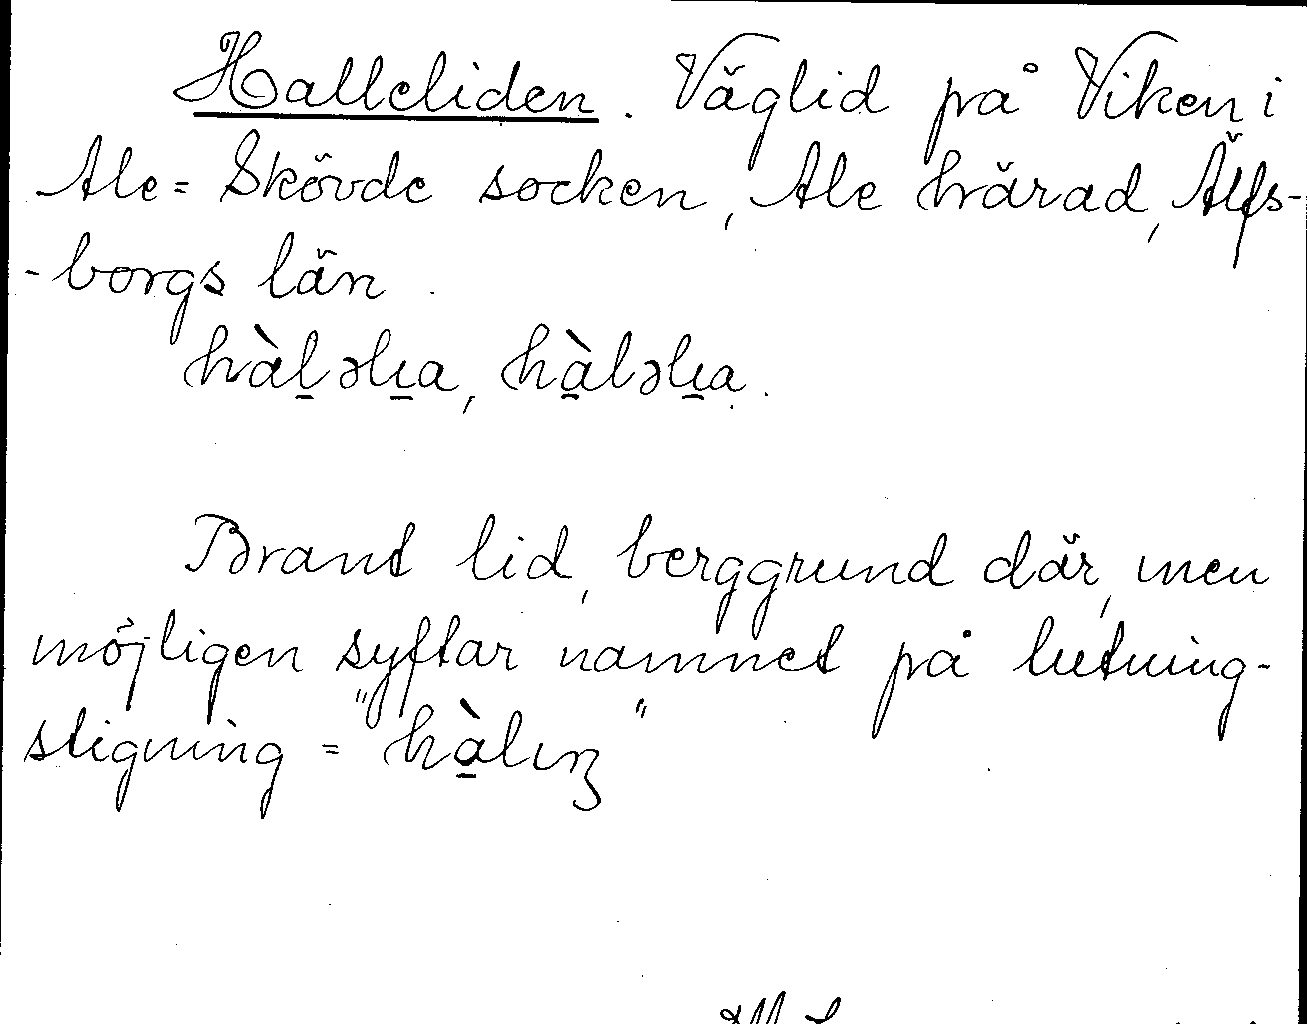 Halleliden. Väglid på Viken i
Ale-Skövde socken, Ale härad, Älfs-
-borgs län.
hàl̠əlı̠a, hà̠ləlı̠a.
Brant lid, berggrund där, men
möjligen syftar namnet på lutning-
stigning = "hà̠lıŋ"